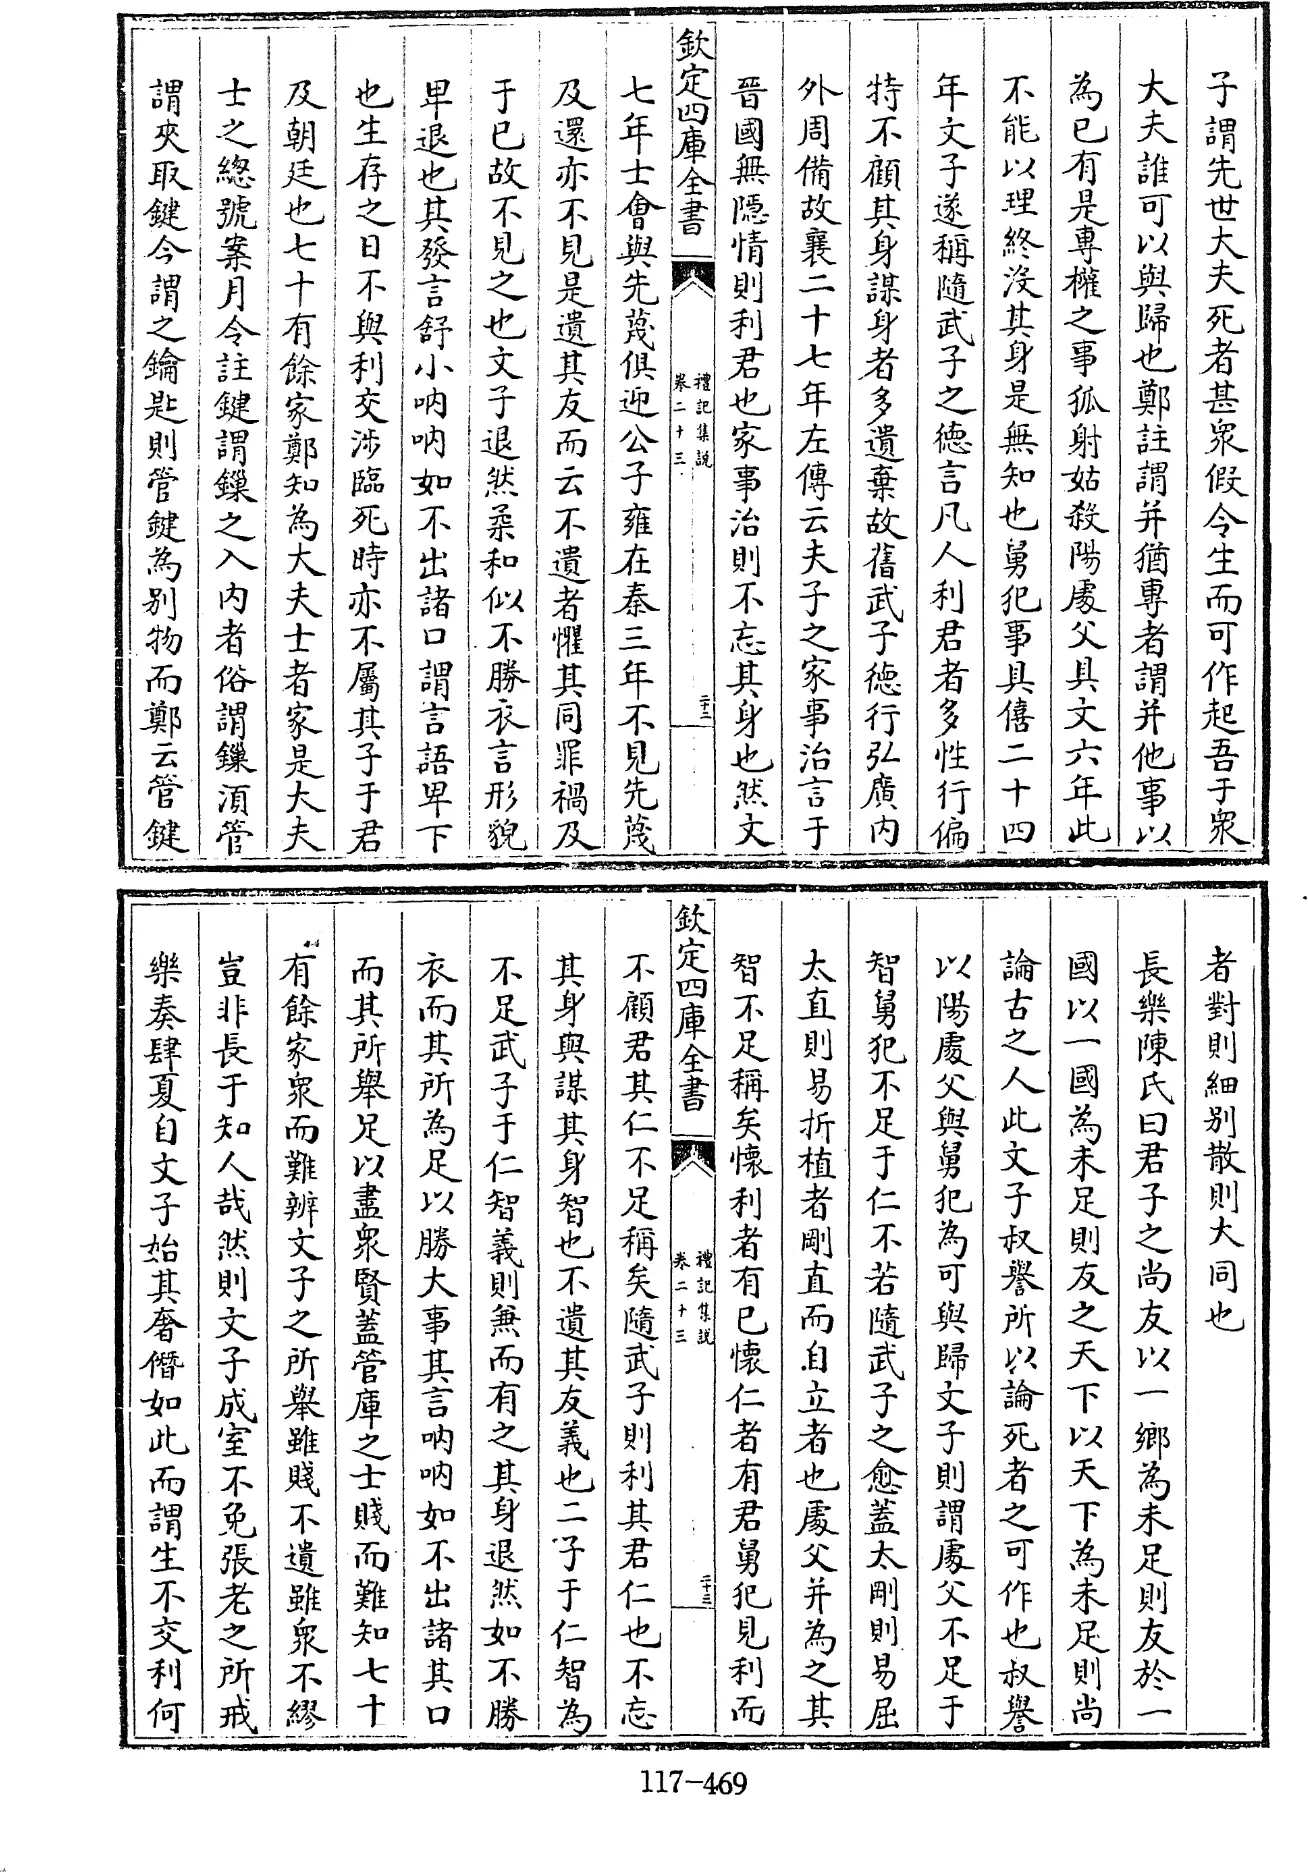 子謂先世大夫死者甚衆假令生而可作起吾于衆
大夫誰可以與歸也鄭註謂并猶專者謂并他事以
為已有是專權之事狐射姑殺陽處父具文六年此
不能以理終沒其身是無知也舅犯事具僖二十四
年文子遂稱隨武子之德言凡人利君者多性行偏
特不顧其身謀身者多遺棄故舊武子德行弘廣内
外周備故襄二十七年左傳云夫子之家事治言于
晉國無隱情則利君也家事治則不忘其身也然文
欽定四庫全書
禮記集說
卷二十三
二十二
七年士會與先蔑俱迎公子雍在秦三年不見先蔑
及還亦不見是遺其友而云不遺者懼其同罪禍及
于已故不見之也文子退然柔和似不勝衣言形貌
卑退也其發言舒小呐呐如不出諸口謂言語卑下
也生存之日不與利交涉臨死時亦不屬其子于君
及朝廷也七十有餘家鄭知為大夫士者家是大夫
士之總號案月令註鍵謂鏁之入内者俗謂鏁湏管
謂夾取鍵今謂之鑰匙則管鍵為别物而鄭云管鍵
者對則細别散則大同也
長樂陳氏曰君子之尚友以一鄉為未足則友於一
國以一國為未足則友之天下以天下為未足則尚
論古之人此文子叔譽所以論死者之可作也叔譽
以陽處父與舅犯為可與歸文子則謂處父不足于
智舅犯不足于仁不若隨武子之愈蓋太剛則易屈
太直則易折植者剛直而自立者也處父并為之其
智不足稱矣懷利者有已懷仁者有君舅犯見利而
欽定四庫全書
禮記集說
卷二十三
二十三
不顧君其仁不足稱矣隨武子則利其君仁也不忘
其身與謀其身智也不遺其友義也二子于仁智為
不足武子于仁智義則兼而有之其身退然如不勝
衣而其所為足以勝大事其言呐呐如不出諸其口
而其所舉足以盡衆賢蓋管庫之士賤而難知七十
有餘家衆而難辨文子之所舉雖賤不遺雖衆不繆
豈非長于知人哉然則文子成室不免張老之所戒
樂奏肆夏自文子始其奢僭如此而謂生不交利何
117-469